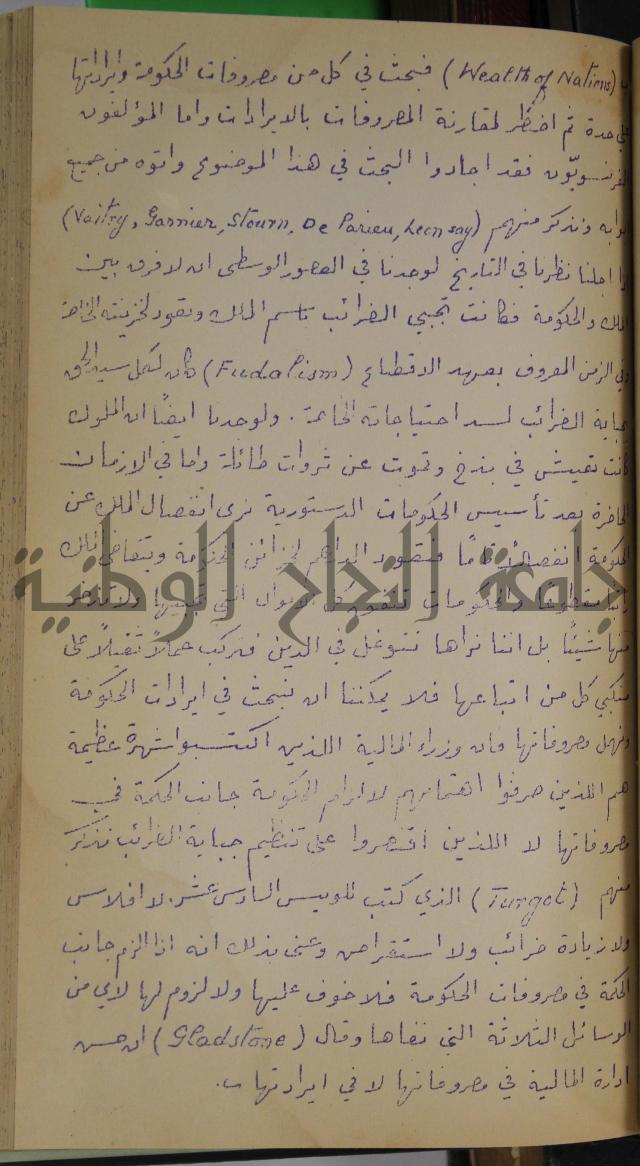 (Wealth of Nations) فبحث في كل من مصروفات الحكومة وايراداتها
على حدة ثم اضطر لمقارنة المصروفات بالايرادات واما المؤلفون
الفرنسويّون فقد اجادوا البحث في هذا الموضوع واتوه من جميع
ابوابه ونذكر منهم (Vaitry, Garnier, Stourn, De Parieu, Leon say)
اذا اجلنا نظرنا في التاريخ لوجدنا في العصور الوسطى ان لا فرق بين
الملك والحكومة فكانت تجبى الضرائب باسم الملك وتعود لخزينته الخاصة
وفي الزمن المعروف بعهد الاقطاع (Fudalism) كان لكل سيد الحق
بجباية الضرائب لسد احتياجاته الخاصة . ولوجدنا ايضًا ان الملوك
كانت تعيش في بذخ وتموت عن ثروات طائلة واما في الازمان
الحاضرة بعد تأسيس الحكومات الدستورية نرى انفصال الملك عن
الحكومة انفصالًا تامًا فتعود الدراهم لخزائن الحكومة ويتقاضى الملك
راتبًا مقطوعًا والحكومات تنفق كل الاموال التي تجبيها ولا تدخر
منها شيئًا بل اننا نراها تتوغل في الدين فتركب حملًا ثقيلًا على
منكبي كل من اتباعها فلا يمكننا ان نبحث في ايرادات الحكومة
ونهمل مصروفاتها وان وزراء المالية اللذين اكتسبوا شهرة عظيمة
هم اللذين صرفوا اهتمامهم لالزام الحكومة جانب الحكمة في
مصروفاتها لا اللذين اقتصروا على تنظيم جباية الضرائب نذكر
منهم (Turgot) الذي كتب للويس السادس عشر. لا افلاس
ولا زيادة ضرائب ولا استقراض وعنى بذلك انه اذا الزم جانب
الحكمة في مصروفات الحكومة فلا خوف عليها ولا لزوم لها لاي من
الوسائل الثلاثة التي نفاها وقال (Gladstone) ان حسن
ادارة المالية في مصروفاتها لا في ايرادتها
جامعة النجاح الوطنية